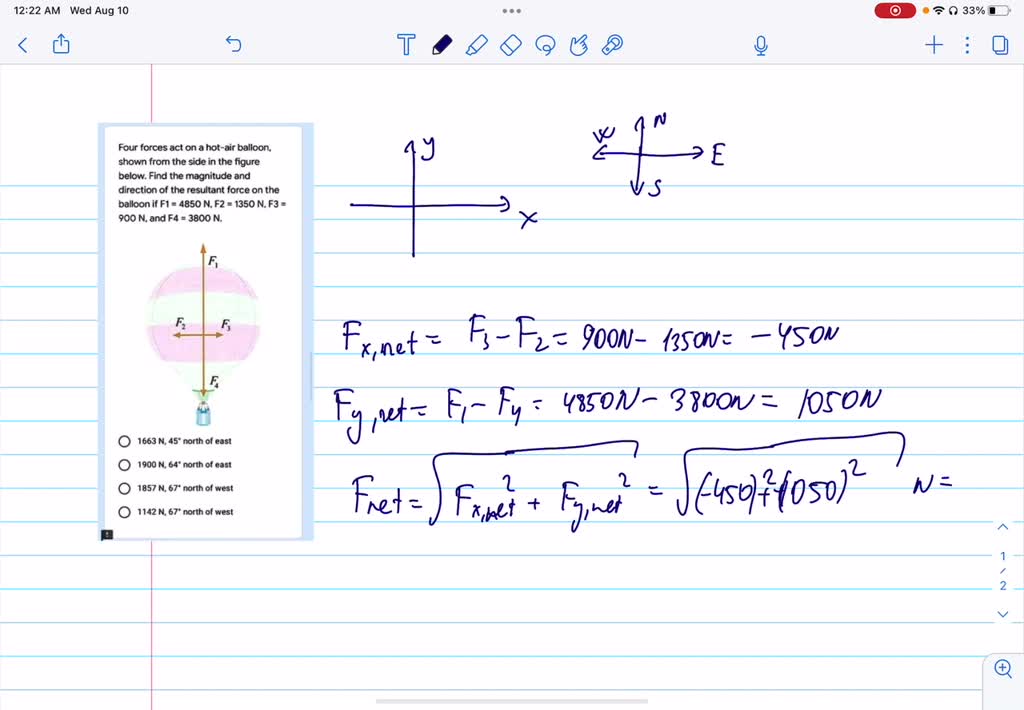 12:22 AM Wed Aug 10
33%
T
Four forces act on a hot-air balloon,
shown from the side in the figure
below. Find the magnitude and
direction of the resultant force on the
balloon if F1 = 4850 N, F2 = 1350 N, F3 =
900 N, and F4 = 3800 N.
F₁
F₂ F₃
F₄
1663 N, 45° north of east
1900 N, 64° north of east
1857 N, 67° north of west
1142 N, 67° north of west
y
x
N
W E
S
Fx,net = F3 - F2 = 900N - 1350N = -450N
Fy,net = F1 - F4 = 4850N - 3800N = 1050N
Fnet = √(Fx,net² + Fy,net²) = √((-450)² + (1050)²) N =
1
/
2